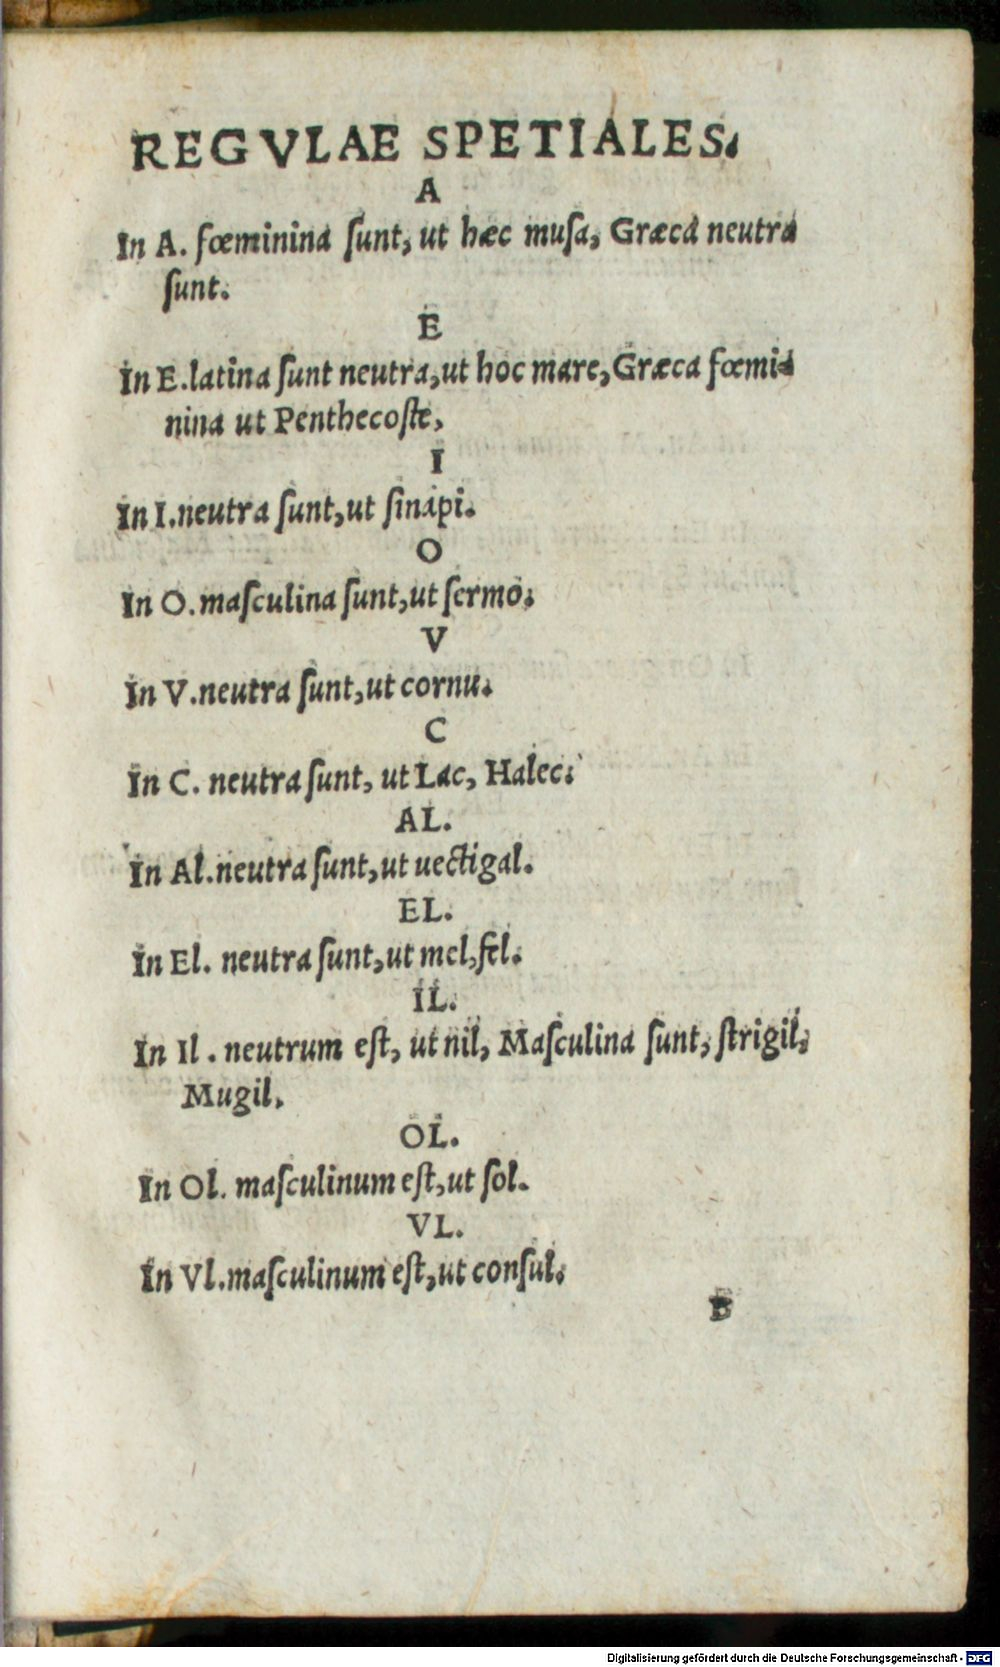 REGVLAE SPETIALES.
A
In A. fœminina ſunt, ut hæc muſa, Græca neutra
ſunt.
E
In E.latina ſunt neutra,ut hoc mare,Græca fœmi-
nina ut Penthecoſte,
I
In I.neutra ſunt,ut ſinapi.
O
In O.maſculina ſunt,ut ſermo.
V
In V.neutra ſunt,ut cornu.
C
In C. neutra ſunt, ut Lac, Halec.
AL.
In Al.neutra ſunt,ut uectigal.
EL.
In El. neutra ſunt,ut mel,fel.
IL.
In Il. neutrum eſt, ut nil, Maſculina ſunt, ſtrigil,
Mugil.
OL.
In Ol. maſculinum eſt,ut ſol.
VL.
In Vl.maſculinum eſt,ut conſul.
B
Digitalisierung gefördert durch die Deutsche Forschungsgemeinschaft - DFG